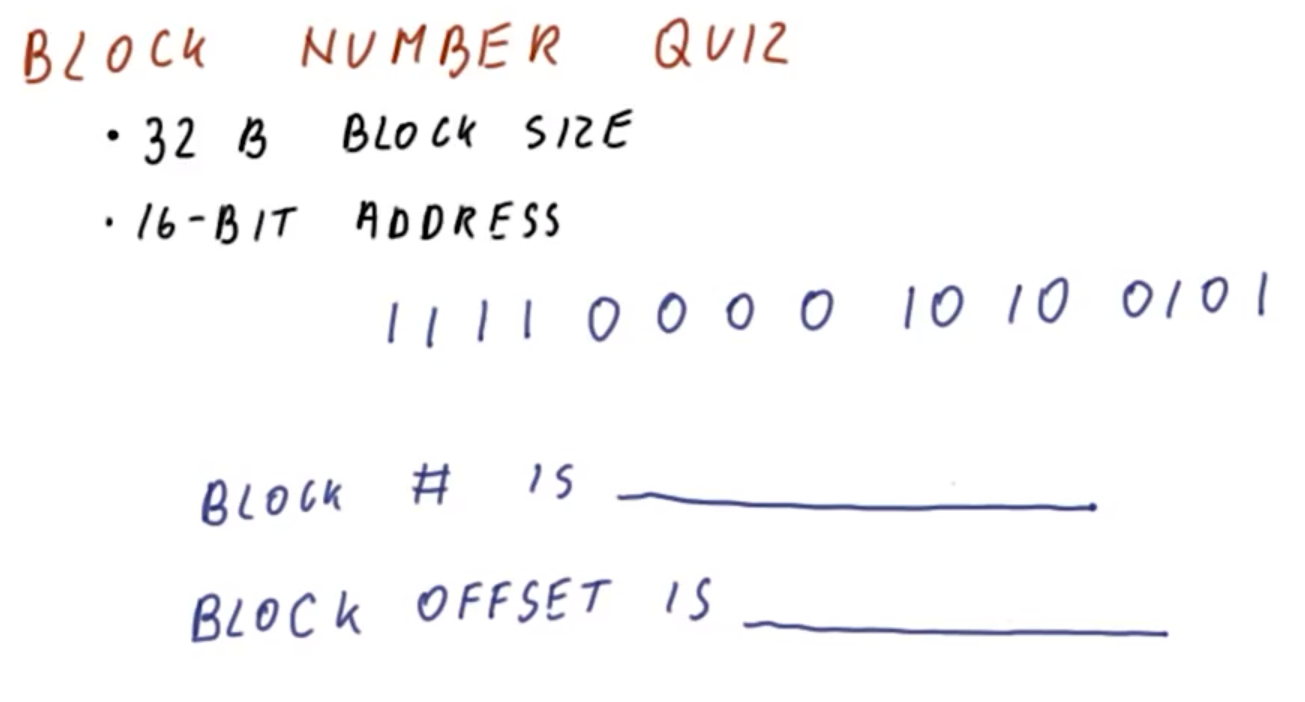 BLOCK NUMBER QUIZ
• 32 B BLOCK SIZE
• 16-BIT ADDRESS
1111 0000 1010 0101
BLOCK # IS ____________
BLOCK OFFSET IS ____________